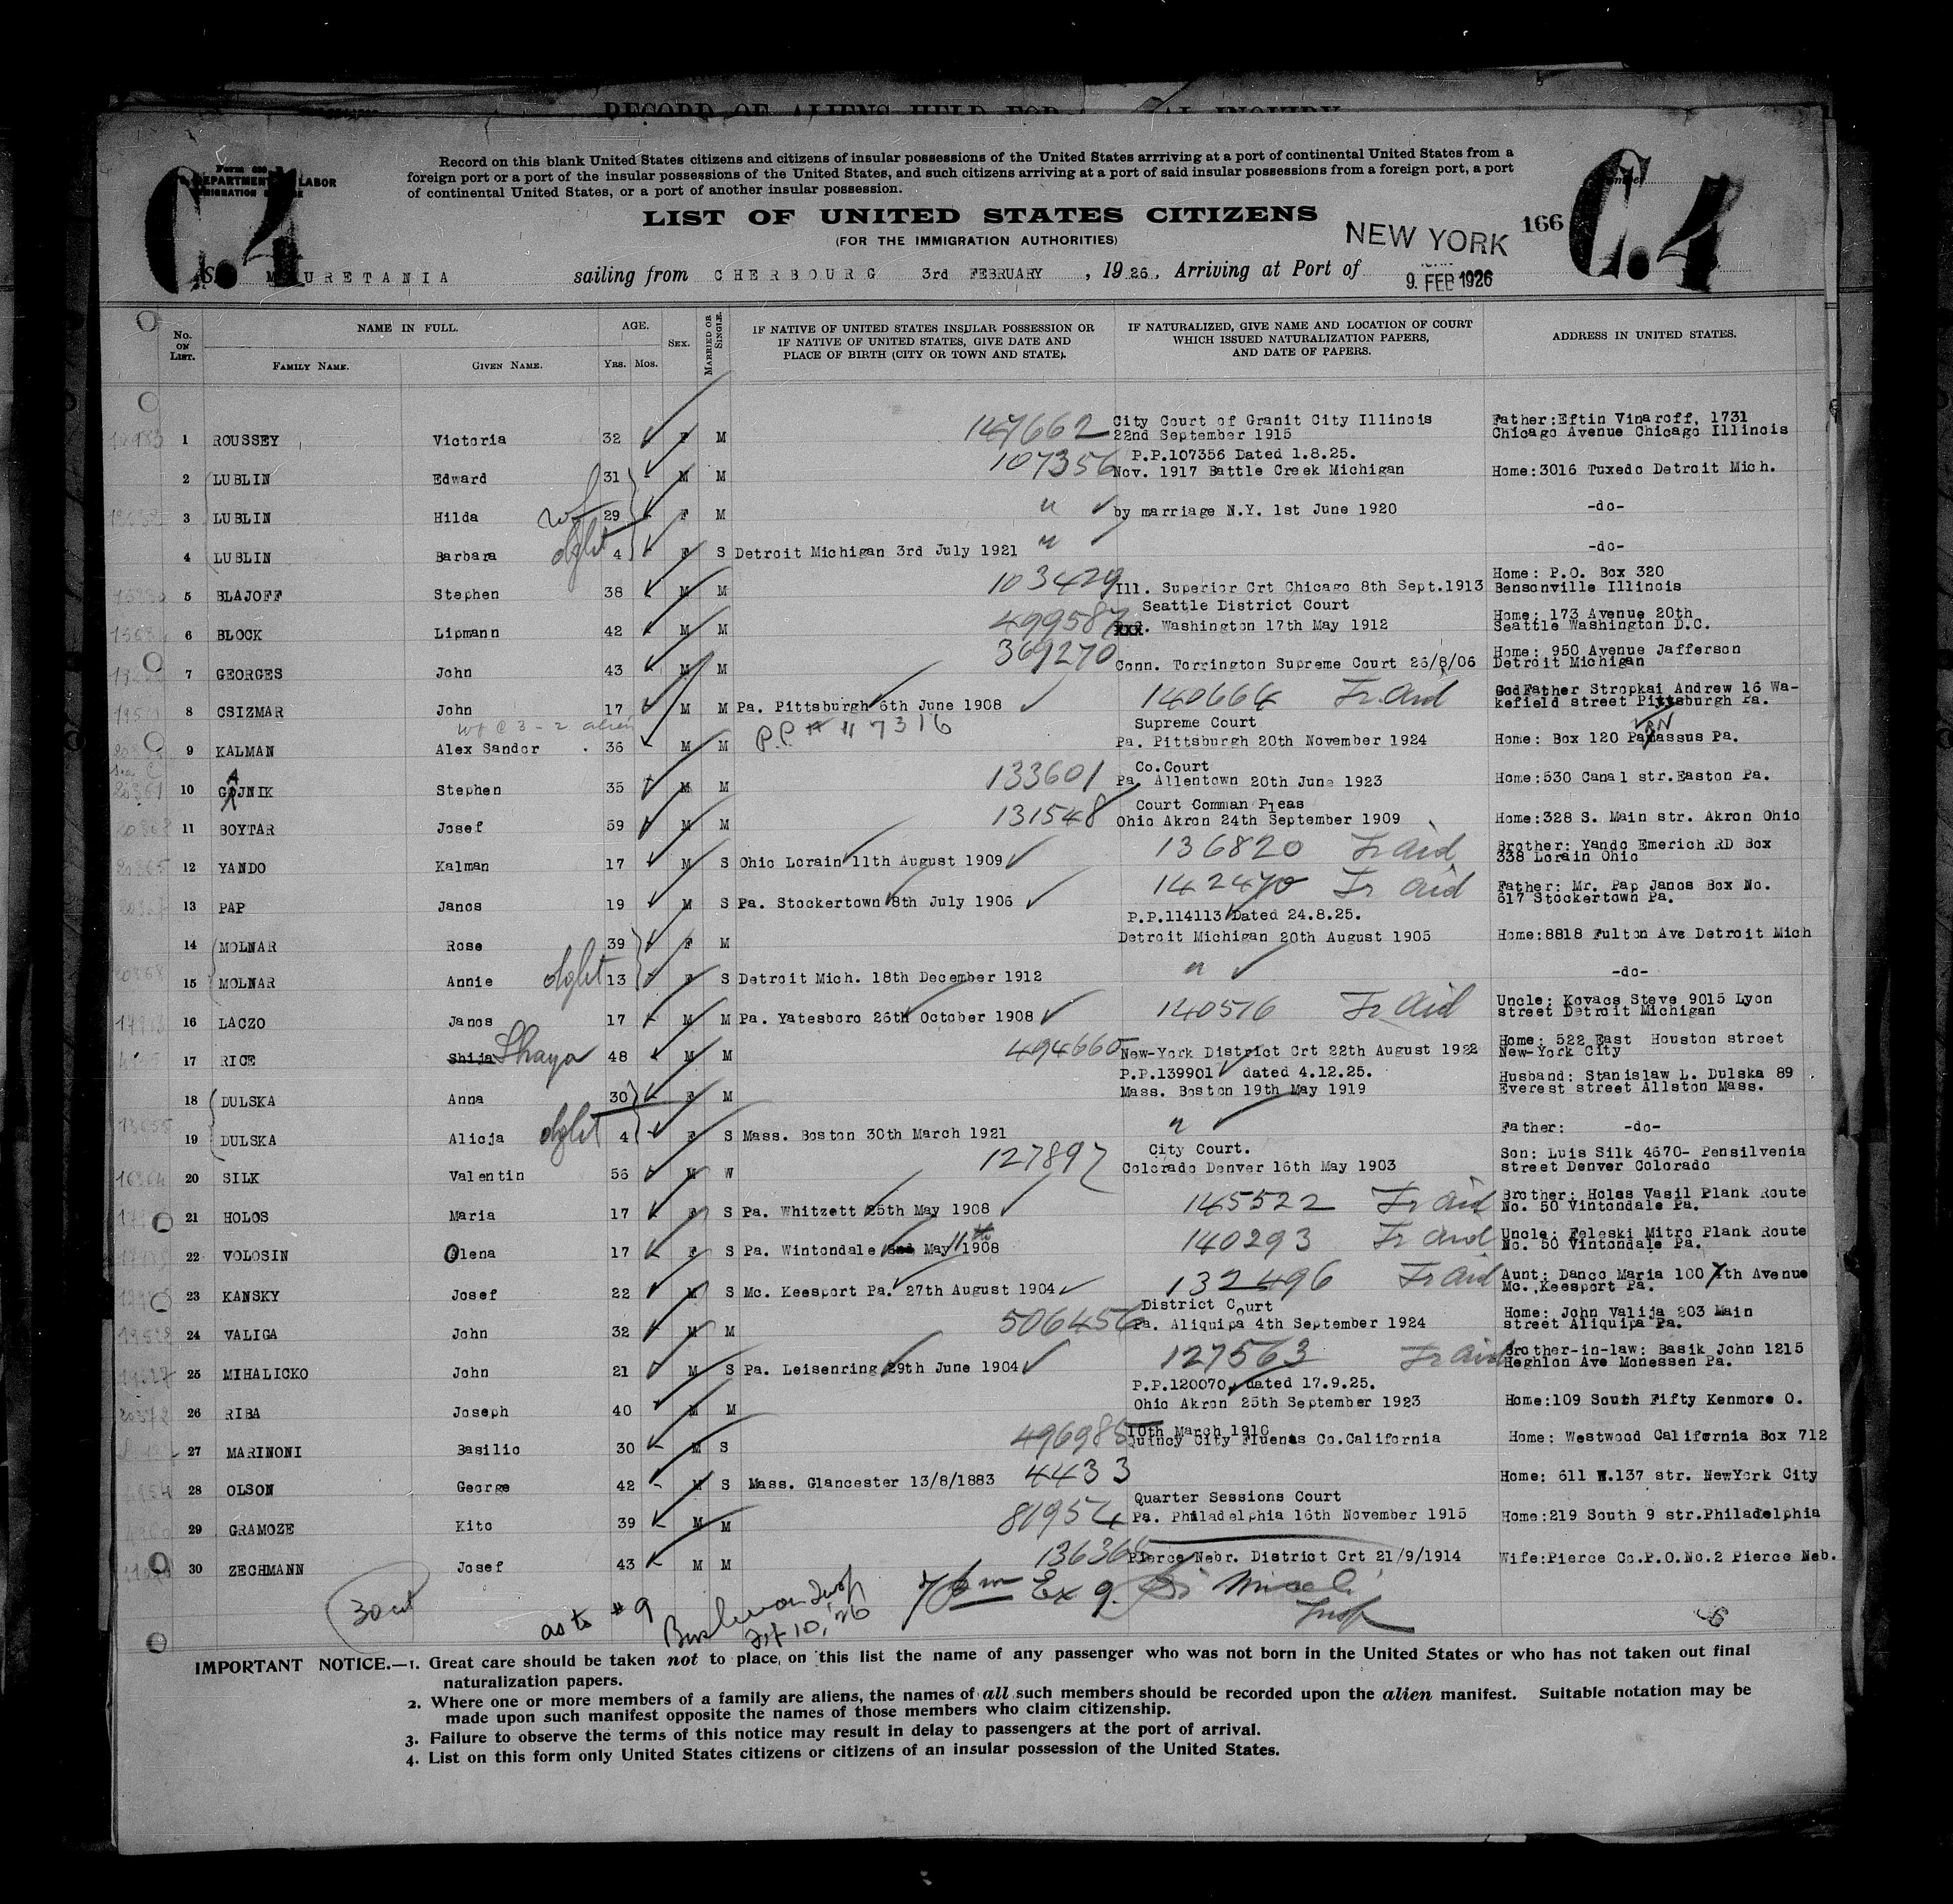 RECORD OF ALIENS HELD FOR
Record on this blank United States citizens and citizens of insular possessions of the United States arrriving at a port of continental United States from a
foreign port or a port of the insular possessions of the United States, and such citizens arriving at a port of said insular possessions from a foreign port, a port
of continental United States, or a port of another insular possession.
C.4
LABOR
C.4
LIST OF UNITED STATES CITIZENS
(FOR THE IMMIGRATION AUTHORITIES)
NEW YORK 166
URETANIA sailing from CHERBOURG 3rd FEBRUARY , 1926, Arriving at Port of
9. FEB 1926
No. ON LIST. NAME IN FULL. AGE. SEX. MARRIED OR SINGLE. IF NATIVE OF UNITED STATES INSULAR POSSESSION OR IF NATIVE OF UNITED STATES, GIVE DATE AND PLACE OF BIRTH (CITY OR TOWN AND STATE). IF NATURALIZED, GIVE NAME AND LOCATION OF COURT WHICH ISSUED NATURALIZATION PAPERS, AND DATE OF PAPERS. ADDRESS IN UNITED STATES.
FAMILY NAME. GIVEN NAME. YRS. MOS.
City Court of Granit City Illinois Father:Eftin Vinaroff, 1731
1 ROUSSEY Victoria 32 F M 147662 22nd September 1915 Chicago Avenue Chicago Illinois
P.P.107356 Dated 1.8.25.
2 LUBLIN Edward 31 M M 107356 Nov. 1917 Battle Creek Michigan Home:3016 Tuxedo Detroit Mich.
3 LUBLIN Hilda wf 29 F M " by marriage N.Y. 1st June 1920 -do-
4 LUBLIN Barbara dght 4 F S Detroit Michigan 3rd July 1921 " -do-
Home: P.O. Box 320
5 BLAJOFF Stephen 38 M M 103429 Ill. Superior Crt Chicago 8th Sept.1913 Bensonville Illinois
Seattle District Court Home: 173 Avenue 20th
6 BLOCK Lipmann 42 M M 499587 xxx. Washington 17th May 1912 Seattle Washington D.C.
Home: 950 Avenue Jafferson
7 GEORGES John 43 M M 369270 Conn. Torrington Supreme Court 26/8/06 Detroit Michigan
GodFather Stropkai Andrew 16 Wa-
8 CSIZMAR John 17 M M Pa. Pittsburgh 6th June 1908 140664 Fr Aid kefield street Pittsburgh Pa.
wf C 3 - 2 alien P.P. # 117316 Supreme Court
9 KALMAN Alex Sandor 36 M M Pa. Pittsburgh 20th November 1924 Home: Box 120 Parnassus Pa.
Co.Court
10 GAJNIK Stephen 35 M M 133601 Pa. Allentown 20th June 1923 Home:530 Canal str.Easton Pa.
Court Comman Pleas
11 BOYTAR Josef 59 M M 131548 Ohio Akron 24th September 1909 Home:328 S. Main str. Akron Ohio
Brother: Yando Emerich RD Box
12 YANDO Kalman 17 M S Ohio Lorain 11th August 1909 136820 Fr Aid 338 Lorain Ohio
Father: Mr. Pap Janos Box No.
13 PAP Janos 19 M S Pa. Stockertown 8th July 1906 142470 Fr Aid 617 Stockertown Pa.
P.P.114113 Dated 24.8.25.
14 MOLNAR Rose 39 F M Detroit Michigan 20th August 1905 Home:8818 Fulton Ave Detroit Mich
15 MOLNAR Annie dght 13 F S Detroit Mich. 18th December 1912 " -do-
Uncle: Kovacs Steve 9015 Lyon
16 LACZO Janos 17 M M Pa. Yatesboro 26th October 1908 140516 Fr Aid street Detroit Michigan
Home: 522 East Houston street
17 RICE Shija Shaya 48 M M 494660 New-York District Crt 22th August 1922 New-York City
P.P.139901 dated 4.12.25. Husband: Stanislaw L. Dulska 89
18 DULSKA Anna 30 F M Mass. Boston 19th May 1919 Everest street Allston Mass.
19 DULSKA Alicja dght 4 F S Mass. Boston 30th March 1921 " Father: -do-
City Court. Son: Luis Silk 4670- Pensilvenia
20 SILK Valentin 56 M W 127897 Colorado Denver 16th May 1903 street Denver Colorado
Brother: Holos Vasil Plank Route
21 HOLOS Maria 17 F S Pa. Whitzett 25th May 1908 145522 Fr Aid No. 50 Vintondale Pa.
Uncle: Feleski Mitro Plank Route
22 VOLOSIN Olena 17 F S Pa. Wintondale 2nd May 11th 1908 140293 Fr Aid No. 50 Vintondale Pa.
Aunt: Danco Maria 100 7th Avenue
23 KANSKY Josef 22 M S Mc. Keesport Pa. 27th August 1904 132496 Fr Aid Mc. Keesport Pa.
District Court Home: John Valija 203 Main
24 VALIGA John 32 M M 506456 Pa. Aliquipa 4th September 1924 street Aliquipa Pa.
Brother-in-law: Basik John 1215
25 MIHALICKO John 21 M S Pa. Leisenring 29th June 1904 127563 Fr Aid Heghlon Ave Monessen Pa.
P.P.120070, dated 17.9.25.
26 RIBA Joseph 40 M M Ohio Akron 25th September 1923 Home:109 South Fifty Kenmore O.
10th March 1910
27 MARINONI Basilio 30 M S 496985 Quincy City Fluenas Co.California Home: Westwood California Box 712
28 OLSON George 42 M S Mass. Glancester 13/8/1883 4433 Home: 611 W.137 str. NewYork City
Quarter Sessions Court
29 GRAMOZE Kito 39 M M 81954 Pa. Philadelphia 16th November 1915 Home:219 South 9 str.Philadelphia
30 ZECHMANN Josef 43 M M 136366 Pierce Nebr. District Crt 21/9/1914 Wife:Pierce Co.P.O.No.2 Pierce Neb.
30 as to #9 Feb 10, '26 Ex 9. Insp
IMPORTANT NOTICE.—1. Great care should be taken not to place, on this list the name of any passenger who was not born in the United States or who has not taken out final
naturalization papers.
2. Where one or more members of a family are aliens, the names of all such members should be recorded upon the alien manifest. Suitable notation may be
made upon such manifest opposite the names of those members who claim citizenship.
3. Failure to observe the terms of this notice may result in delay to passengers at the port of arrival.
4. List on this form only United States citizens or citizens of an insular possession of the United States.